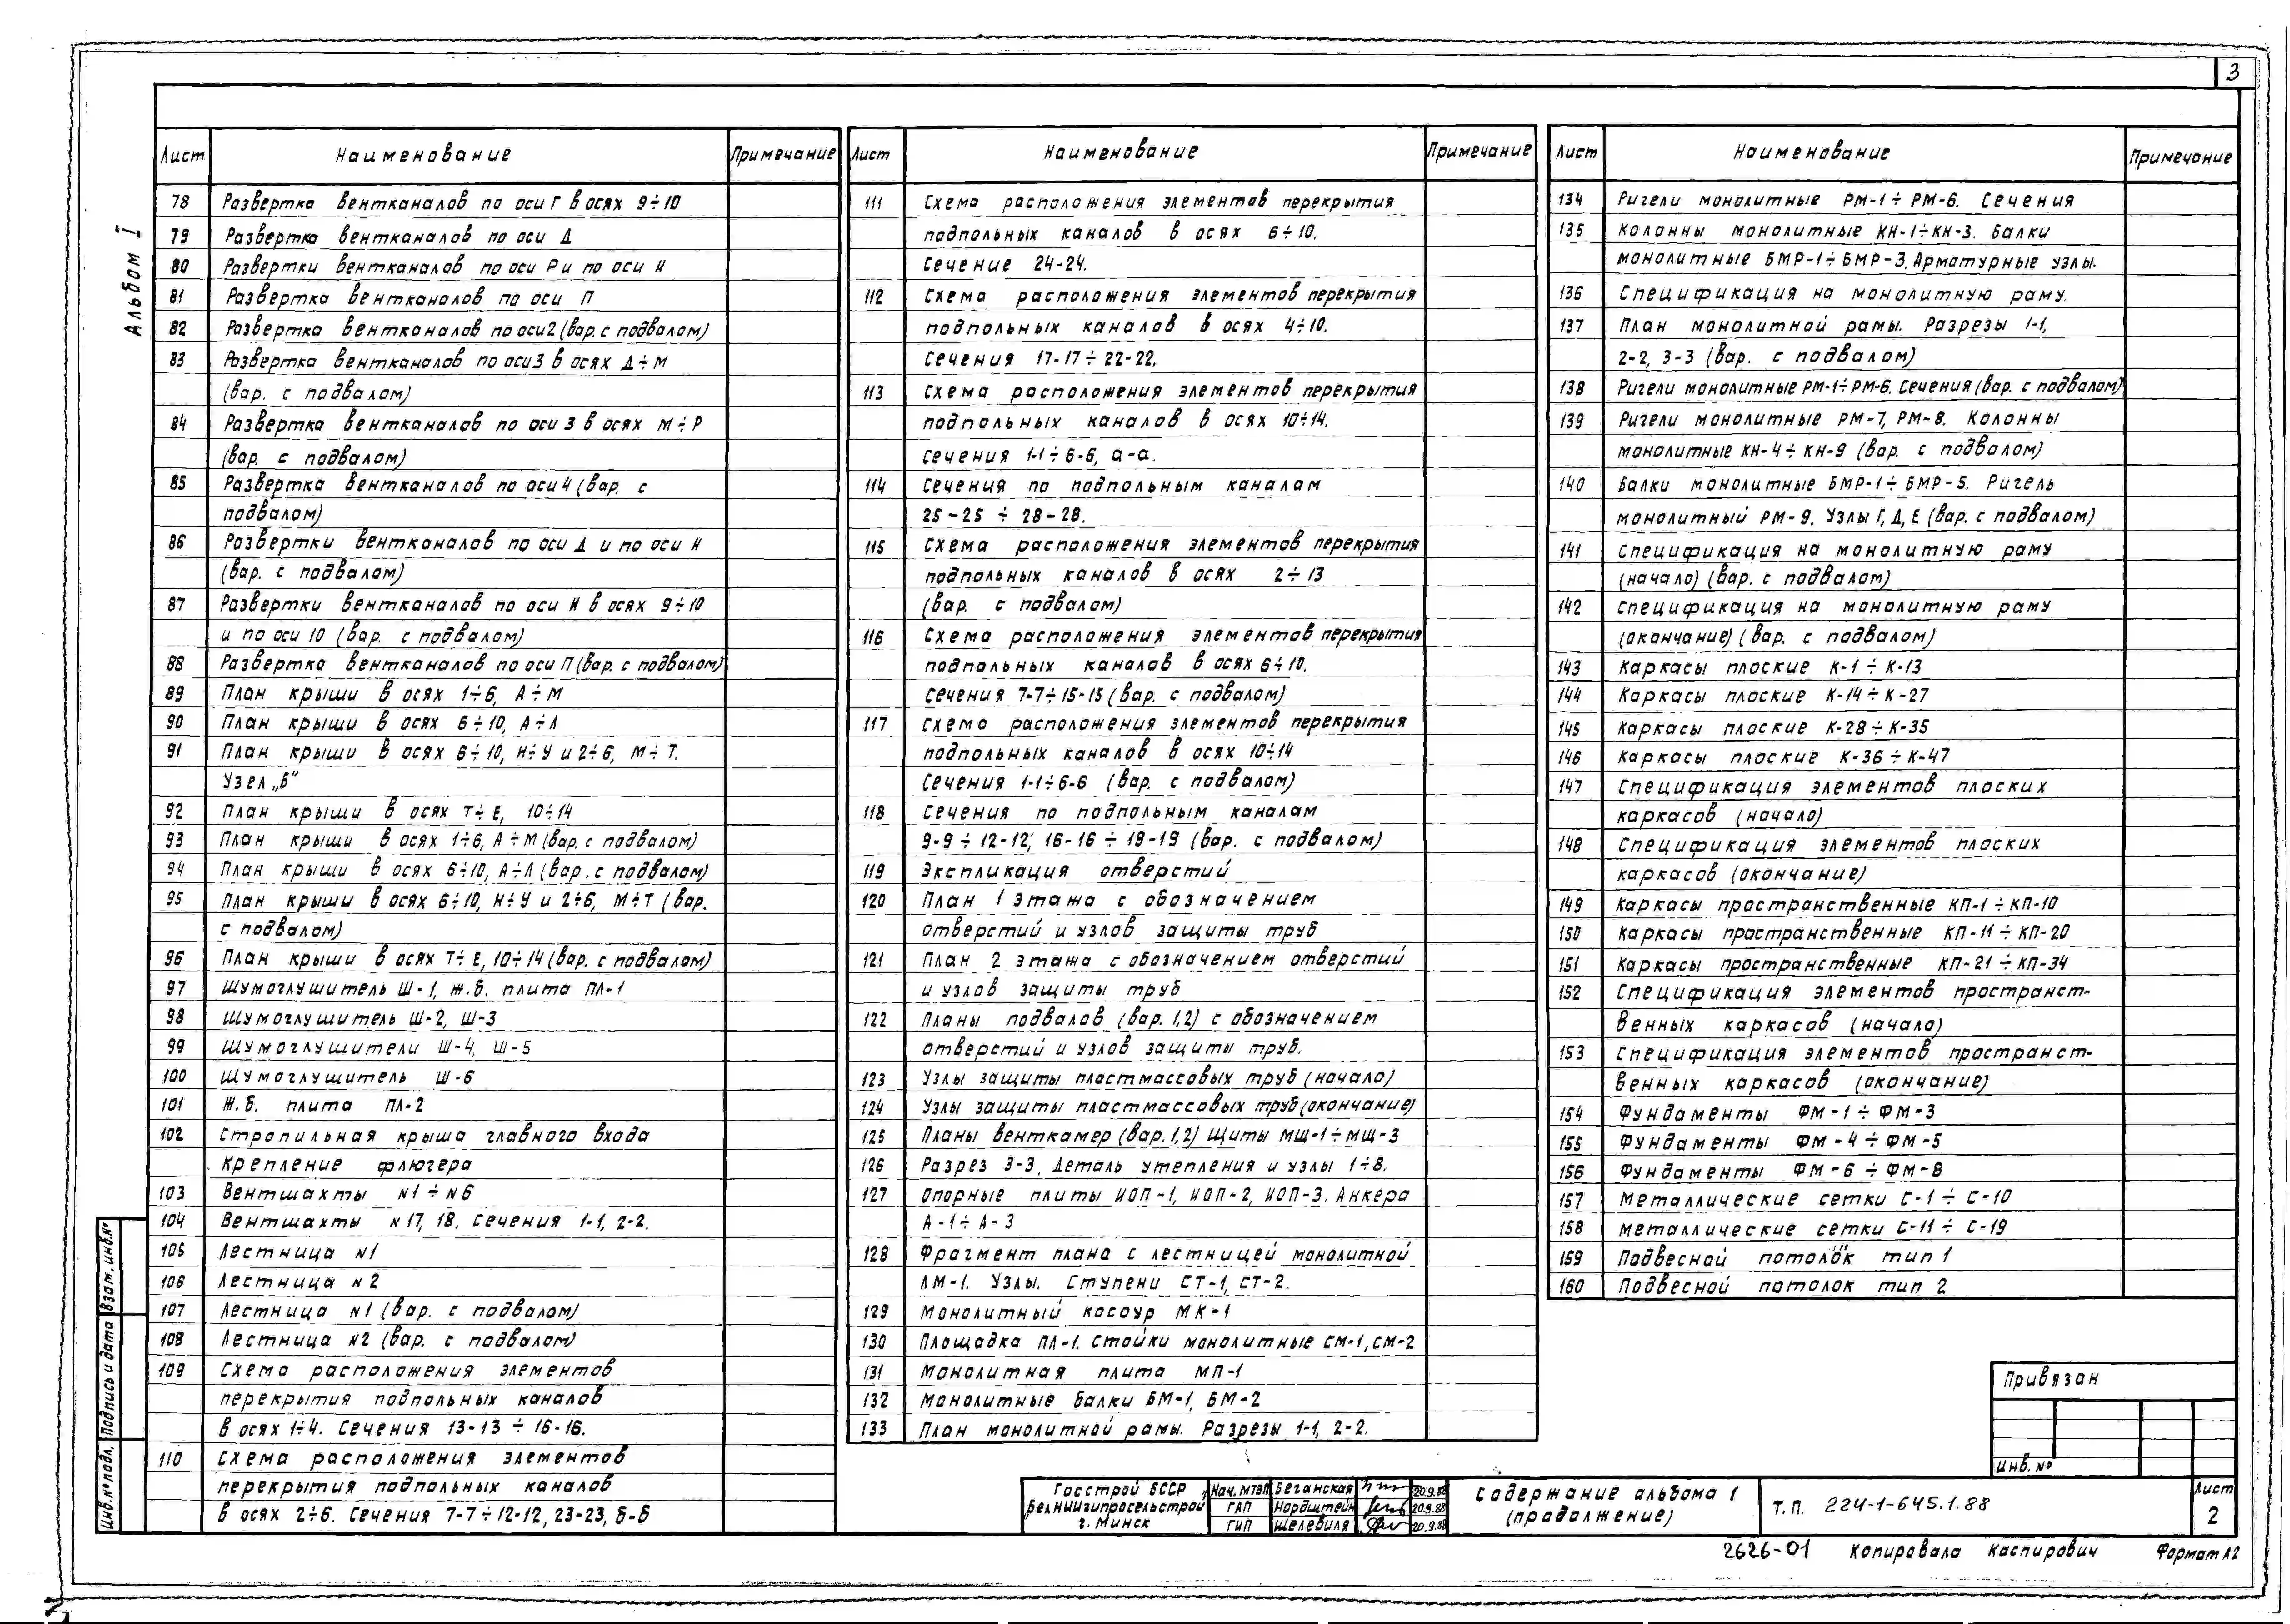 3
Альбом I
Лист Наименование Примечание
78 Развертка вентканалов по оси Г в осях 9÷10
79 Развертка вентканалов по оси Д
80 Развертки вентканалов по оси Р и по оси И
81 Развертка вентканалов по оси П
82 Развертка вентканалов по оси 2 (вар. с подвалом)
83 Развертка вентканалов по оси 3 в осях Д÷М
(вар. с подвалом)
84 Развертка вентканалов по оси 3 в осях М÷Р
(вар. с подвалом)
85 Развертка вентканалов по оси 4 (вар. с
подвалом)
86 Развертки вентканалов по оси Д и по оси И
(вар. с подвалом)
87 Развертки вентканалов по оси И в осях 9÷10
и по оси 10 (вар. с подвалом)
88 Развертка вентканалов по оси П (вар. с подвалом)
89 План крыши в осях 1÷6, А÷М
90 План крыши в осях 6÷10, А÷Л
91 План крыши в осях 6÷10, Н÷У и 2÷6, М÷Т.
Узел „Б"
92 План крыши в осях Т÷Е, 10÷14
93 План крыши в осях 1÷6, А÷М (вар. с подвалом)
94 План крыши в осях 6÷10, А÷Л (вар. с подвалом)
95 План крыши в осях 6÷10, Н÷У и 2÷6, М÷Т (вар.
с подвалом)
96 План крыши в осях Т÷Е, 10÷14 (вар. с подвалом)
97 Шумоглушитель Ш-1, ж.б. плита ПЛ-1
98 Шумоглушитель Ш-2, Ш-3
99 Шумоглушители Ш-4, Ш-5
100 Шумоглушитель Ш-6
101 Ж.б. плита ПЛ-2
102 Стропильная крыша главного входа
крепление флюгера
103 Вентшахты N1÷N6
104 Вентшахты N17, 18. Сечения 1-1, 2-2.
105 Лестница N1
106 Лестница N2
107 Лестница N1 (вар. с подвалом)
108 Лестница N2 (вар. с подвалом)
109 Схема расположения элементов
перекрытия подпольных каналов
в осях 1÷4. Сечения 13-13 ÷ 16-16.
110 Схема расположения элементов
перекрытия подпольных каналов
в осях 2÷6. Сечения 7-7÷12-12, 23-23, б-б
Лист Наименование Примечание
111 Схема расположения элементов перекрытия
подпольных каналов в осях 6÷10.
Сечение 24-24.
112 Схема расположения элементов перекрытия
подпольных каналов в осях 4÷10.
Сечения 17-17÷22-22.
113 Схема расположения элементов перекрытия
подпольных каналов в осях 10÷14.
Сечения 1-1÷6-6, а-а.
114 Сечения по подпольным каналам
25-25 ÷ 28-28.
115 Схема расположения элементов перекрытия
подпольных каналов в осях 2÷13
(вар. с подвалом)
116 Схема расположения элементов перекрытия
подпольных каналов в осях 6÷10.
Сечения 7-7÷15-15 (вар. с подвалом)
117 Схема расположения элементов перекрытия
подпольных каналов в осях 10÷14
Сечения 1-1÷6-6 (вар. с подвалом)
118 Сечения по подпольным каналам
9-9÷12-12; 16-16÷19-19 (вар. с подвалом)
119 Экспликация отверстий
120 План 1 этажа с обозначением
отверстий и узлов защиты труб
121 План 2 этажа с обозначением отверстий
и узлов защиты труб
122 Планы подвалов (вар. 1,2) с обозначением
отверстий и узлов защиты труб.
123 Узлы защиты пластмассовых труб (начало)
124 Узлы защиты пластмассовых труб (окончание)
125 Планы венткамер (вар. 1,2) Щиты МЩ-1÷МЩ-3
126 Разрез 3-3. Деталь утепления и узлы 1÷8.
127 Опорные плиты ИОП-1, ИОП-2, ИОП-3. Анкера
А-1÷А-3
128 Фрагмент плана с лестницей монолитной
ЛМ-1. Узлы. Ступени СТ-1, СТ-2.
129 Монолитный косоур МК-1
130 Площадка ПЛ-1. Стойки монолитные СМ-1, СМ-2
131 Монолитная плита МП-1
132 Монолитные балки БМ-1, БМ-2
133 План монолитной рамы. Разрезы 1-1, 2-2.
Лист Наименование Примечание
134 Ригели монолитные РМ-1÷РМ-6. Сечения
135 Колонны монолитные КН-1÷КН-3. Балки
монолитные БМР-1÷БМР-3. Арматурные узлы.
136 Спецификация на монолитную раму.
137 План монолитной рамы. Разрезы 1-1,
2-2, 3-3 (вар. с подвалом)
138 Ригели монолитные РМ-1÷РМ-6. Сечения (вар. с подвалом)
139 Ригели монолитные РМ-7, РМ-8. Колонны
монолитные КН-4÷КН-9 (вар. с подвалом)
140 Балки монолитные БМР-1÷БМР-5. Ригель
монолитный РМ-9. Узлы Г, Д, Е (вар. с подвалом)
141 Спецификация на монолитную раму
(начало) (вар. с подвалом)
142 Спецификация на монолитную раму
(окончание) (вар. с подвалом)
143 Каркасы плоские К-1÷К-13
144 Каркасы плоские К-14÷К-27
145 Каркасы плоские К-28÷К-35
146 Каркасы плоские К-36÷К-47
147 Спецификация элементов плоских
каркасов (начало)
148 Спецификация элементов плоских
каркасов (окончание)
149 Каркасы пространственные КП-1÷КП-10
150 Каркасы пространственные КП-11÷КП-20
151 Каркасы пространственные КП-21÷КП-34
152 Спецификация элементов пространст-
венных каркасов (начало)
153 Спецификация элементов пространст-
венных каркасов (окончание)
154 Фундаменты ФМ-1÷ФМ-3
155 Фундаменты ФМ-4÷ФМ-5
156 Фундаменты ФМ-6÷ФМ-8
157 Металлические сетки С-1÷С-10
158 Металлические сетки С-11÷С-19
159 Подвесной потолок тип 1
160 Подвесной потолок тип 2
Взам. инв.№
Подпись и дата
Инв.№ подл.
Привязан
Инв. №
Госстрой БССР
БелНИИгипросельстрой
г. Минск
Нач. МТЭП Беганская 20.9.88
ГАП Нордштейн 20.9.88
ГИП Шелевиля 20.9.88
Содержание альбома 1
(продолжение)
Т.П. 224-1-645.1.88
Лист
2
2626-01 Копировала Каспирович Формат А2